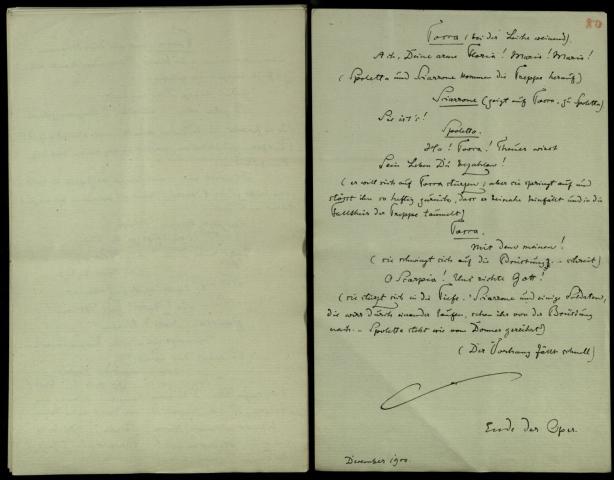 80
Tosca (bei der Leiche weinend).
Ach, Deine arme Floria! Mario! Mario!
(Spoletta und Sciarrone kommen die Treppe herauf)
Sciarrone (zeigt auf Tosca, zu Spoletta)
Sie ist's!
Spoletta.
Ha! Tosca! Theuer wirst
Sein Leben Du bezahlen!
(er will sich auf Tosca stürzen, aber sie springt auf und
stösst ihn so heftig zurück, dass er beinahe hinfällt und in die
Fallthür der Treppe taumelt)
Tosca.
Mit dem meinen!
(sie schwingt sich auf die Brüstung - schreit)
O Scarpia! Uns richte Gott!
(sie stürzt sich in die Tiefe. Sciarrone und einige Soldaten,
die wirr durch einander laufen, sehen ihr von der Brüstung
nach. - Spoletta steht wie vom Donner gerührt)
(Der Vorhang fällt schnell)
Ende der Oper.
December 1900